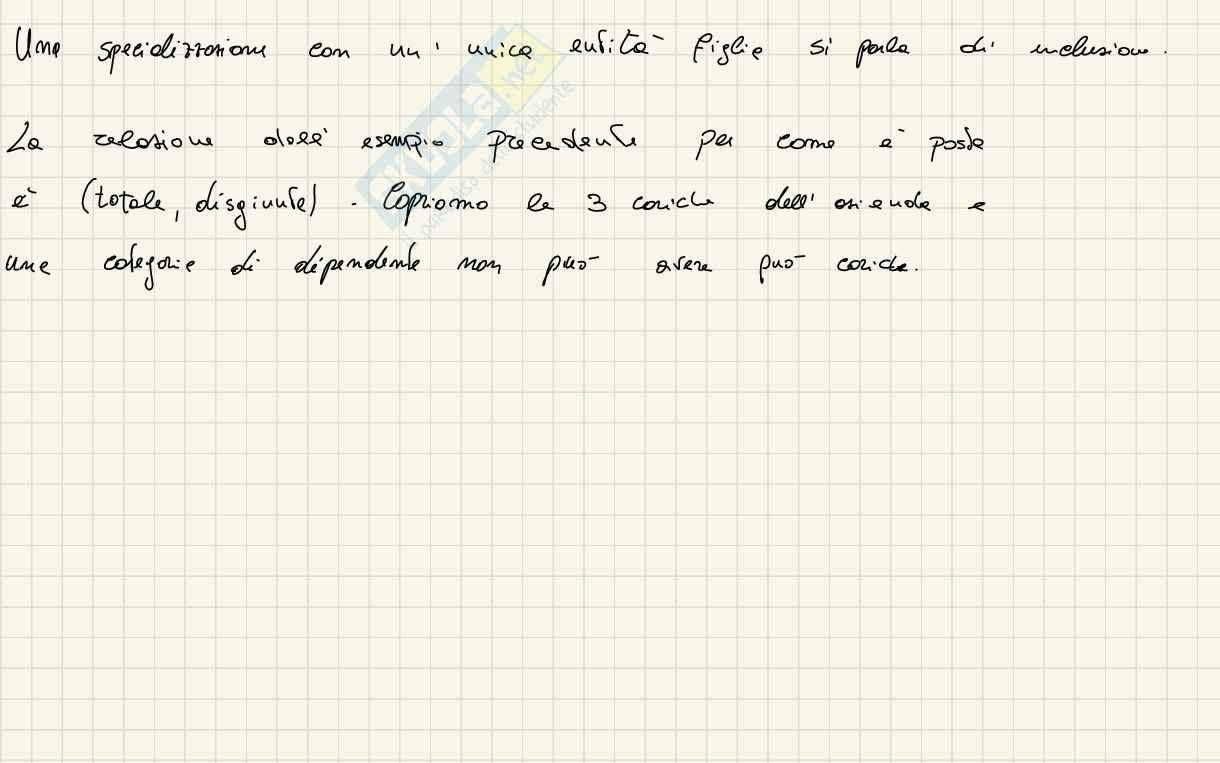 Una specializzazione con un' unica entità figlia si parla di inclusione.
La relazione dell' esempio precedente per come è posta
è (totale, disgiunta). Copriamo le 3 cariche dell' azienda e
una categoria di dipendente non può avere può cariche.
SKUOLA.net
il paradiso dello studente